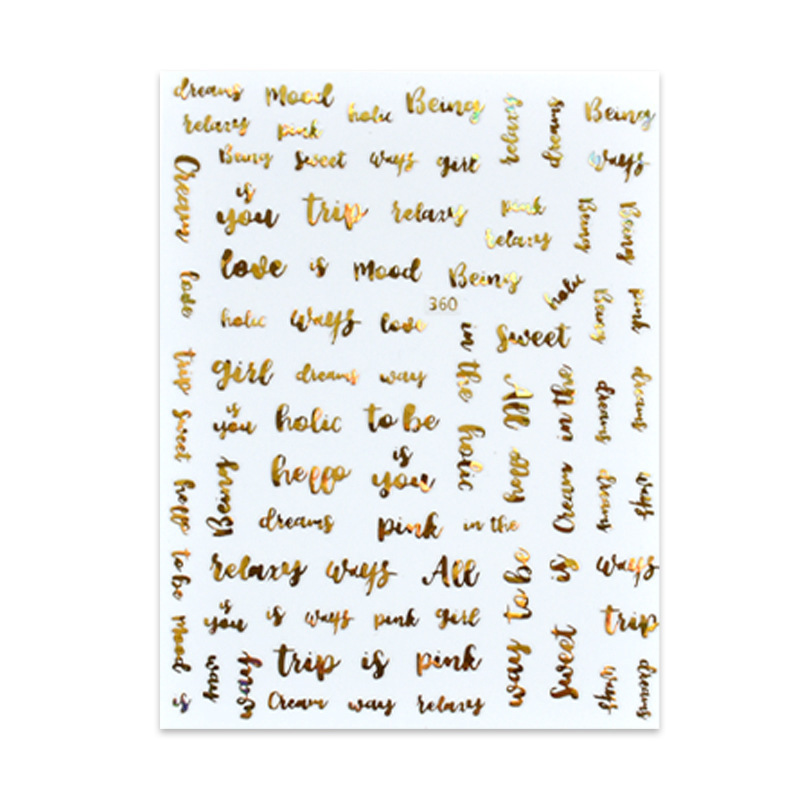 dreams Mood holic Being relaxy dreams Being
relaxy pink
Being sweet ways girl ways
Cream is
you trip relaxy pink Being Being
relaxy
love is Mood Being holic
love 360 Being pink
holic ways love in the sweet
trip girl dreams way All in the dreams dreams
sweet is
you holic to be holic hello Cream
hello hello is
you dreams ways
Being dreams pink in the
to be relaxy ways All way to be is ways
Mood is
you is ways pink girl sweet trip
is way way trip is pink ways dreams
Cream way relaxy